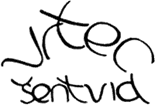 vrtec
šentvid